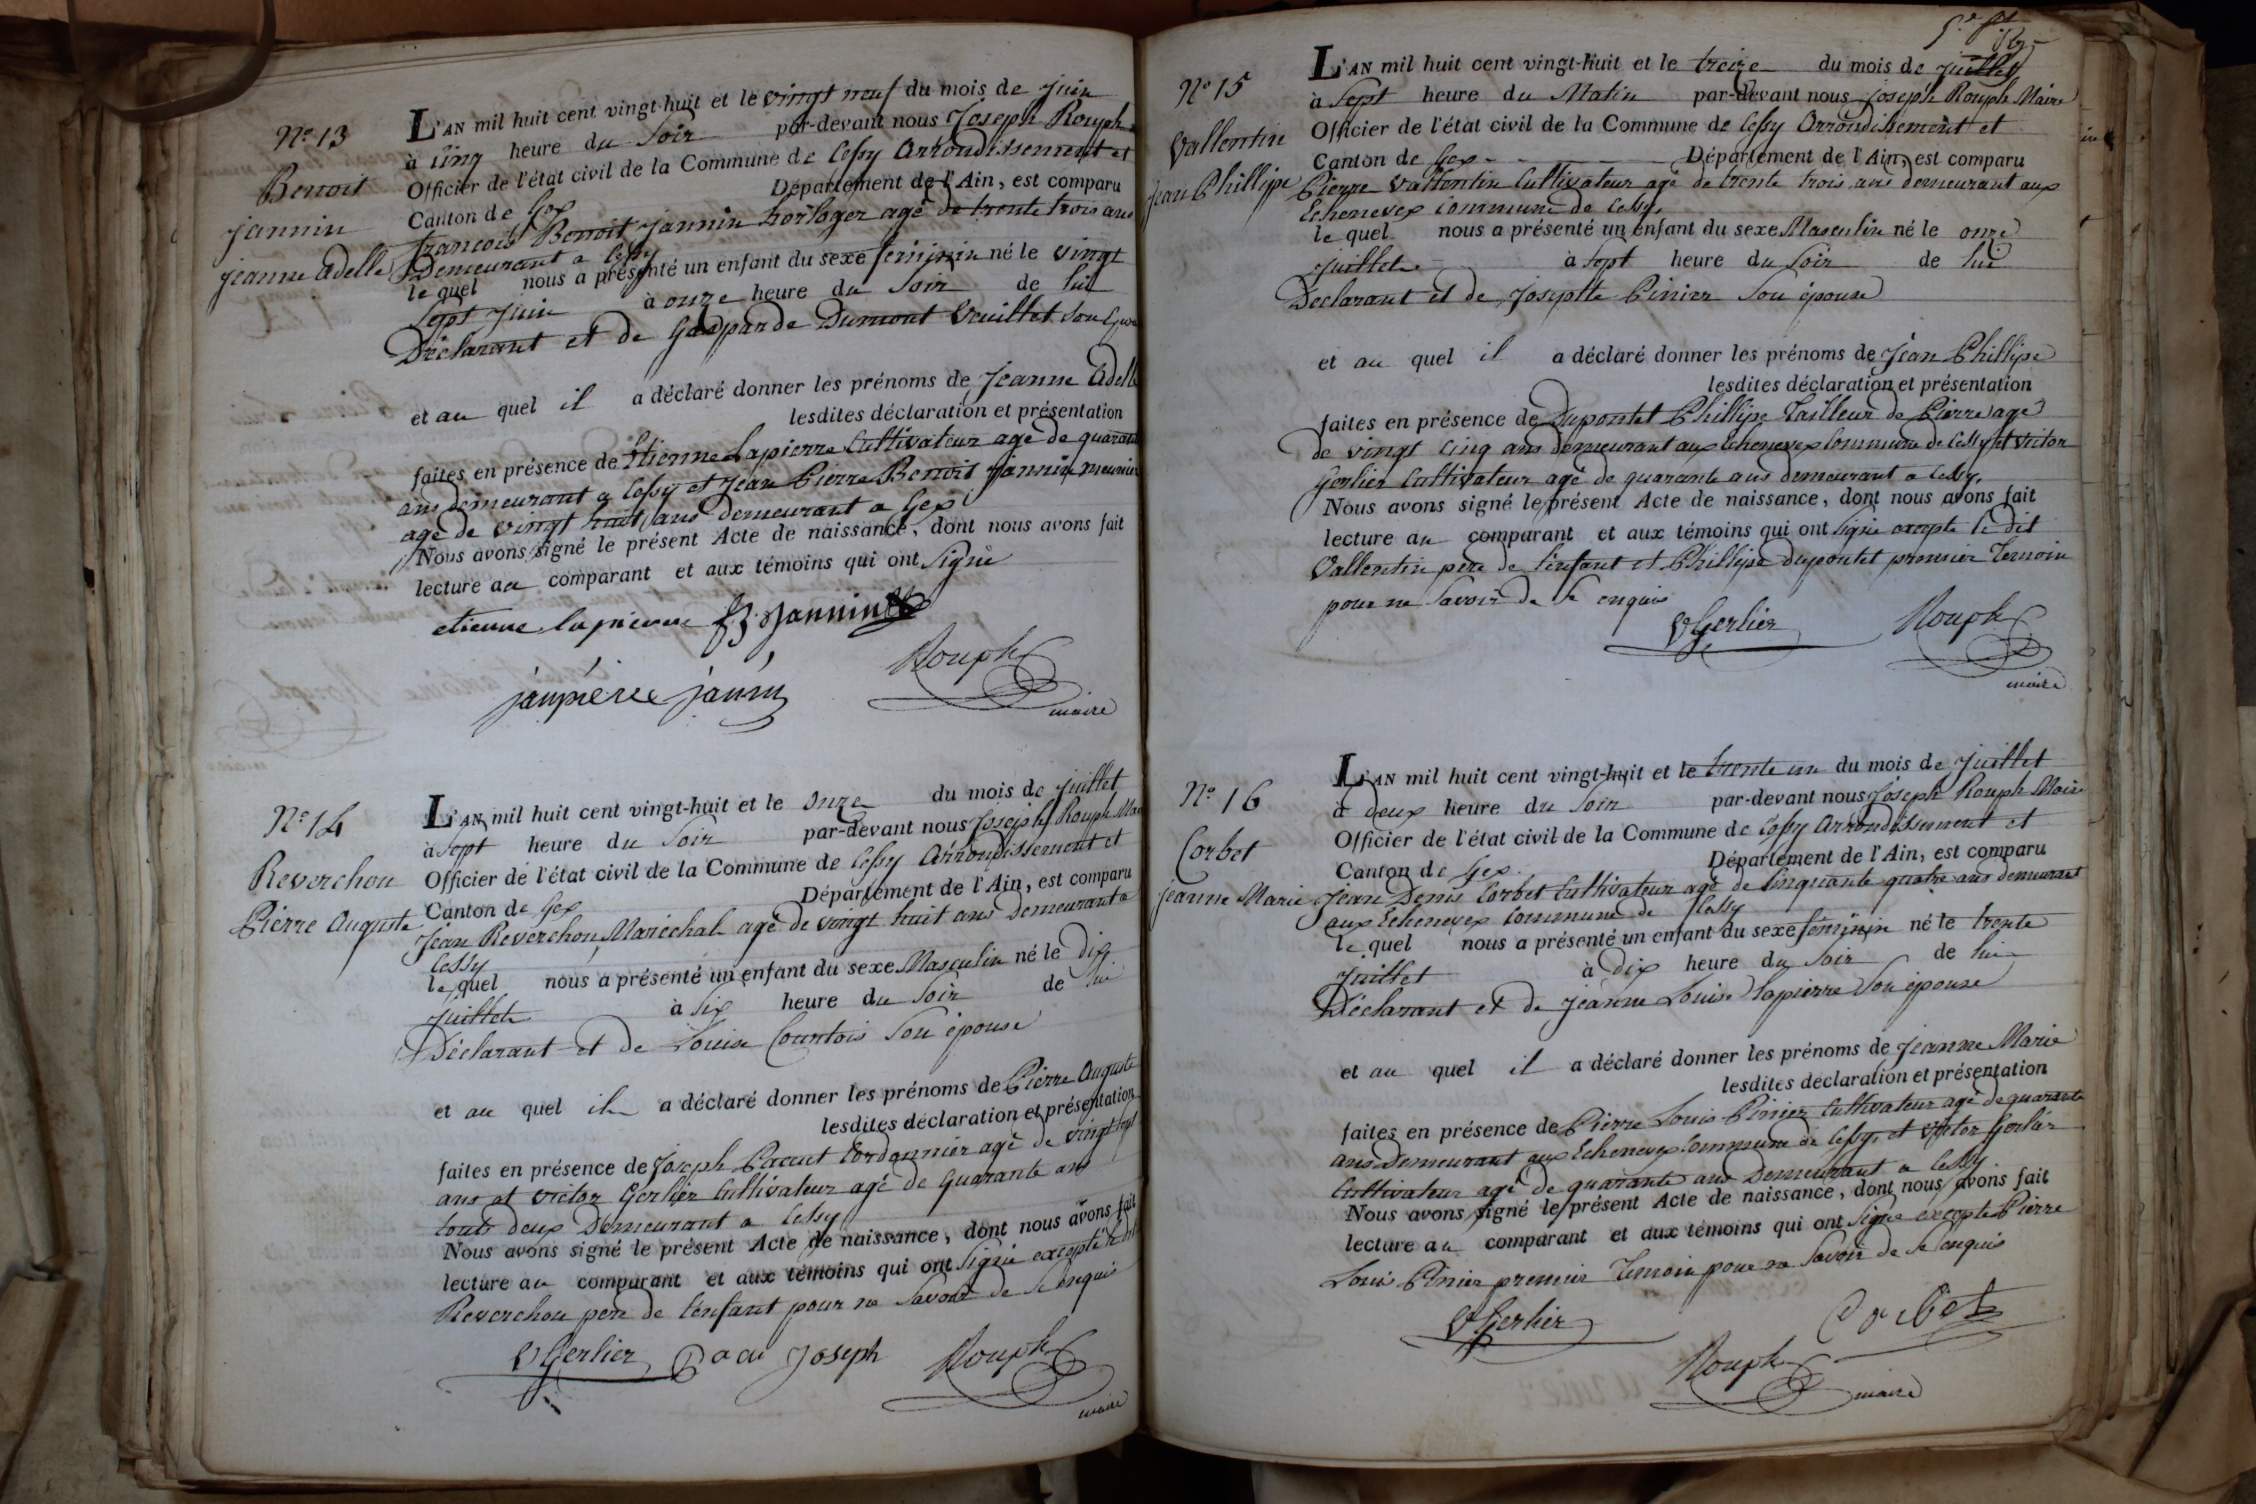 N.° 13
Benoit
Jannin
Jeanne Adelle
L'AN mil huit cent vingt-huit et le vingt neuf du mois de Juin
à Cinq heure du Soir par-devant nous Joseph Rouph
Officier de l'état civil de la Commune de Cessy Arrondissement et
Canton de Gex Département de l'Ain, est comparu
François Benoit Jannin horloger agé de trente trois ans
Demeurant a Cessy
lequel nous a présenté un enfant du sexe féminin né le vingt
Sept Juin à onze heure du Soir de lui
Déclarant et de Gasparde Dumont Vuillet Son
et au quel il a déclaré donner les prénoms de Jeanne Adelle
lesdites déclaration et présentation
faites en présence de Etienne Lapierre Cultivateur agé de quarante
ans demeurant a Cessy et Jean Pierre Benoit Jannin meunier
agé de vingt huit ans demeurant a Gex
Nous avons signé le présent Acte de naissance, dont nous avons fait
lecture au comparant et aux témoins qui ont Signé
etienne lapierre Jannin
janpiere janin Rouph
maire
N.° 14
Reverchon
Pierre Auguste
L'AN mil huit cent vingt-huit et le Onze du mois de Juillet
à Sept heure du Soir par-devant nous Joseph Rouph Maire
Officier de l'état civil de la Commune de Cessy Arrondissement et
Canton de Gex Département de l'Ain, est comparu
Jean Reverchon, Maréchal agé de vingt huit ans demeurant a
Cessy
lequel nous a présenté un enfant du sexe Masculin né le dix
Juillet à Six heure du Soir de lui
Déclarant et de Louise Courtois Son épouse
et au quel il a déclaré donner les prénoms de Pierre Auguste
lesdites déclaration et présentation
faites en présence de Joseph Pacaut Cordonnier agé de vingt sept
ans et Victor Gerlier Cultivateur agé de Quarante ans
tous deux Demeurant a Cessy
Nous avons signé le présent Acte de naissance, dont nous avons fait
lecture au comparant et aux témoins qui ont Signé excepté le dit
Reverchon père de l'enfant pour ne Savoir de ce enquis
VGerlier Joseph Rouph
maire
N.° 15
Vallentin
Jean Phillipe
L'AN mil huit cent vingt-huit et le treize du mois de Juillet
à Sept heure du Matin par-devant nous Joseph Rouph Maire
Officier de l'état civil de la Commune de Cessy Arrondissement et
Canton de Gex Département de l'Ain, est comparu
Pierre Vallentin Cultivateur agé de trente trois ans demeurant aux
Echenevex Commune de Cessy,
lequel nous a présenté un enfant du sexe Masculin né le onze
Juillet à Sept heure du Soir de lui
Déclarant et de Josephte Pinier Son épouse
et au quel il a déclaré donner les prénoms de Jean Phillipe
lesdites déclaration et présentation
faites en présence de Dupontet Phillipe Tailleur de Pierre agé
de vingt Cinq ans demeurant aux Echenevex Commune de Cessy et Victor
Gerlier Cultivateur agé de quarante ans demeurant a Cessy,
Nous avons signé le présent Acte de naissance, dont nous avons fait
lecture au comparant et aux témoins qui ont Signé excepté le dit
Vallentin père de l'enfant et Phillipe dupontet premier Temoin
pour ne Savoir de ce enquis
VGerlier Rouph
maire
N.° 16
Corbet
Jeanne Marie
L'AN mil huit cent vingt-huit et le trente un du mois de Juillet
à deux heure du Soir par-devant nous Joseph Rouph Maire
Officier de l'état civil de la Commune de Cessy Arrondissement et
Canton de Gex. Département de l'Ain, est comparu
Jean Denis Corbet Cultivateur agé de Cinquante quatre ans demeurant
aux Echenevex Commune de Cessy
lequel nous a présenté un enfant du sexe féminin né le trente
Juillet à dix heure du Soir de lui
Déclarant et de Jeanne Louise Lapierre Son épouse
et au quel il a déclaré donner les prénoms de Jeanne Marie
lesdites déclaration et présentation
faites en présence de Pierre Louis Pinier Cultivateur agé de quarante
ans Demeurant aux Echenevex Commune de Cessy, et Victor Gerlier
Cultivateur agé de quarante ans Demeurant a Cessy
Nous avons signé le présent Acte de naissance, dont nous avons fait
lecture au comparant et aux témoins qui ont Signé excepté Pierre
Louis Pinier premier Temoin pour ne Savoir de ce enquis
VGerlier Corbet
Rouph
maire